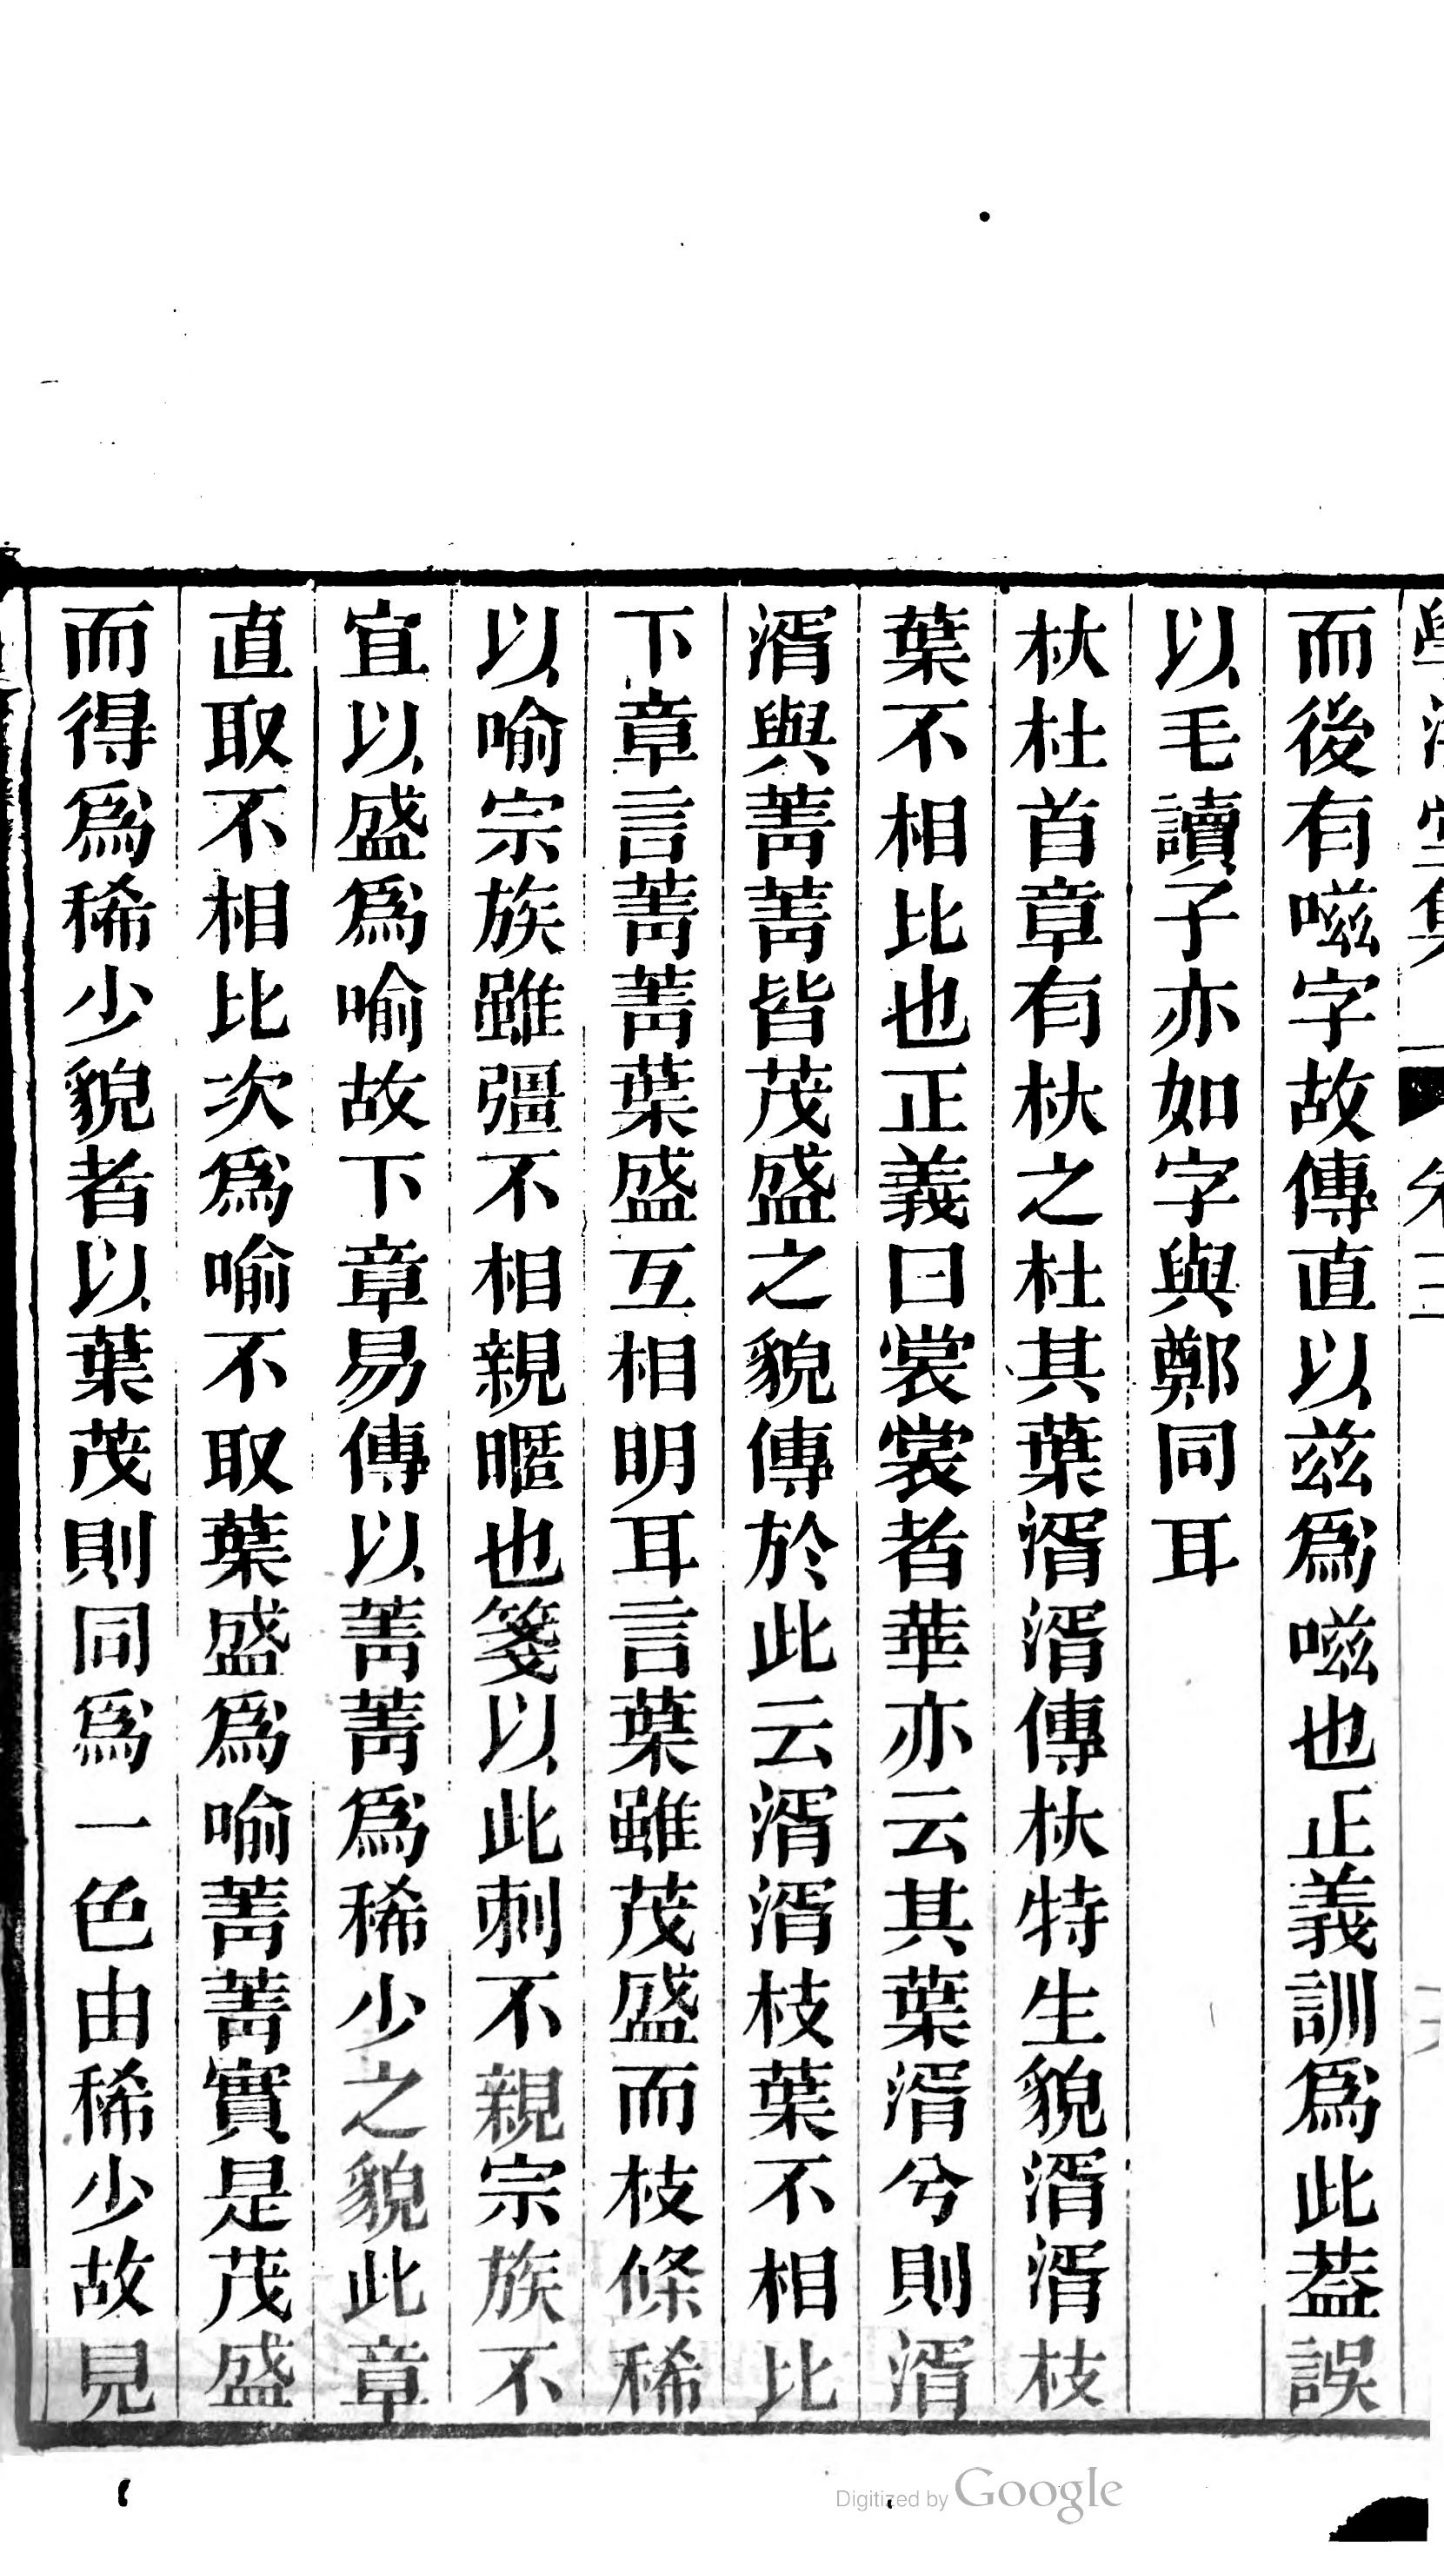 而後有嗞字故傳直以兹爲嗞也正義訓爲此葢誤
以毛讀子亦如字與鄭同耳
杕杜首章有杕之杜其葉湑湑傳杕特生貌湑湑枝
葉不相比也正義曰裳裳者華亦云其葉湑兮則湑
湑與菁菁皆茂盛之貌傳於此云湑湑枝葉不相比
下章言菁菁葉盛互相明耳言葉雖茂盛而枝條稀
以喻宗族雖彊不相親暱也箋以此刺不親宗族不
宜以盛爲喻故下章易傳以菁菁爲稀少之貌此章
直取不相比次爲喻不取葉盛爲喻菁菁實是茂盛
而得爲稀少貌者以葉茂則同爲一色由稀少故見
Digitized by Google